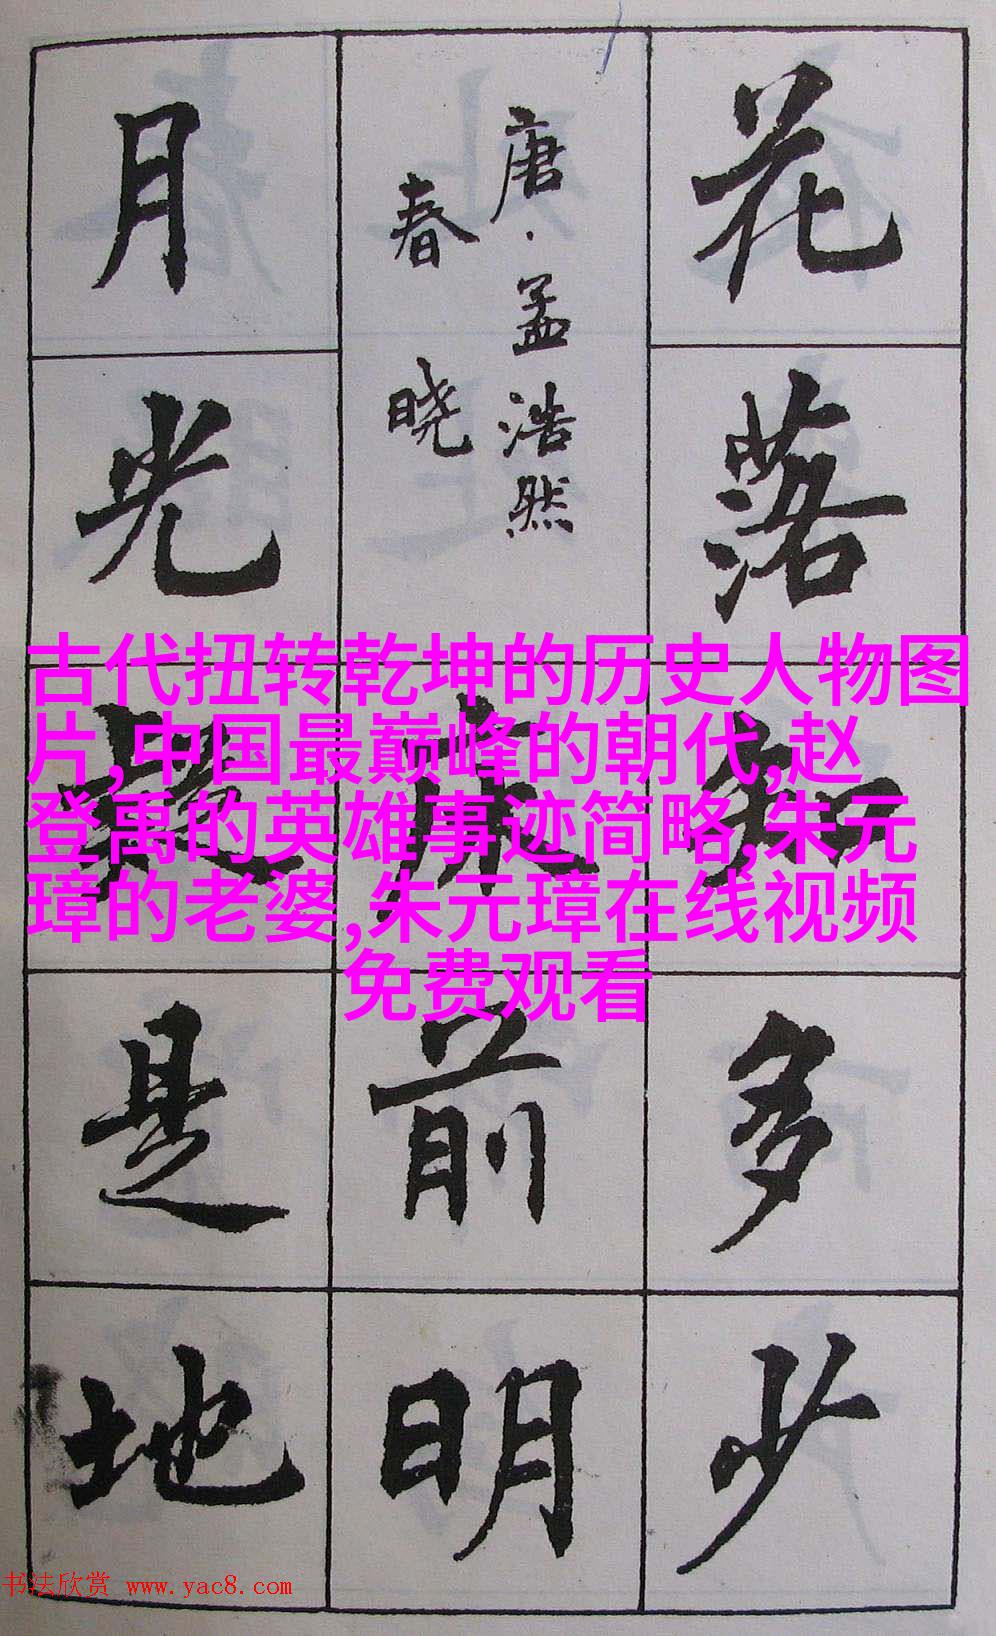 花落知多少
唐·孟浩然
春晓
床前明
月光疑是地
古代扭转乾坤的历史人物图
片,中国最巅峰的朝代,赵
登禹的英雄事迹简略,朱元
璋的老婆,朱元璋在线视频
免费观看
书法欣赏 www.yac8.com